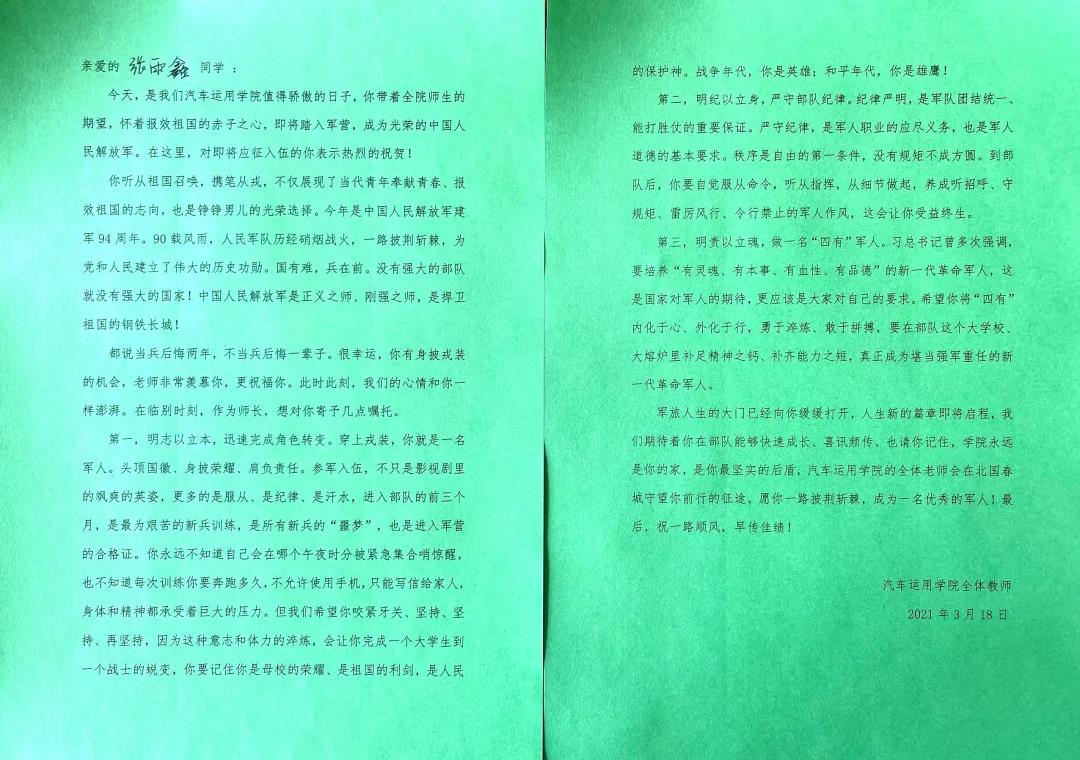 亲爱的 张雨鑫 同学：
今天，是我们汽车运用学院值得骄傲的日子，你带着全院师生的
期望，怀着报效祖国的赤子之心，即将踏入军营，成为光荣的中国人
民解放军。在这里，对即将应征入伍的你表示热烈的祝贺！
你听从祖国召唤，携笔从戎，不仅展现了当代青年奉献青春、报
效祖国的志向，也是铮铮男儿的光荣选择。今年是中国人民解放军建
军 94 周年。90 载风雨，人民军队历经硝烟战火，一路披荆斩棘，为
党和人民建立了伟大的历史功勋。国有难，兵在前。没有强大的部队
就没有强大的国家！中国人民解放军是正义之师、刚强之师，是捍卫
祖国的钢铁长城！
都说当兵后悔两年，不当兵后悔一辈子。很幸运，你有身披戎装
的机会，老师非常羡慕你，更祝福你。此时此刻，我们的心情和你一
样澎湃。在临别时刻，作为师长，想对你寄予几点嘱托。
第一，明志以立本，迅速完成角色转变。穿上戎装，你就是一名
军人。头顶国徽、身披荣耀、肩负责任。参军入伍，不只是影视剧里
的飒爽的英姿，更多的是服从、是纪律、是汗水，进入部队的前三个
月，是最为艰苦的新兵训练，是所有新兵的“噩梦”，也是进入军营
的合格证。你永远不知道自己会在哪个午夜时分被紧急集合哨惊醒，
也不知道每次训练你要奔跑多久，不允许使用手机，只能写信给家人，
身体和精神都承受着巨大的压力。但我们希望你咬紧牙关、坚持、坚
持、再坚持，因为这种意志和体力的淬炼，会让你完成一个大学生到
一个战士的蜕变，你要记住你是母校的荣耀、是祖国的利剑，是人民
的保护神。战争年代，你是英雄；和平年代，你是雄鹰！
第二，明纪以立身，严守部队纪律。纪律严明，是军队团结统一、
能打胜仗的重要保证。严守纪律，是军人职业的应尽义务，也是军人
道德的基本要求。秩序是自由的第一条件，没有规矩不成方圆。到部
队后，你要自觉服从命令，听从指挥，从细节做起，养成听招呼、守
规矩、雷厉风行、令行禁止的军人作风，这会让你受益终生。
第三，明责以立魂，做一名“四有”军人。习总书记曾多次强调，
要培养“有灵魂、有本事、有血性、有品德”的新一代革命军人，这
是国家对军人的期待，更应该是大家对自己的要求。希望你将“四有”
内化于心、外化于行，勇于淬炼、敢于拼搏，要在部队这个大学校、
大熔炉里补足精神之钙、补齐能力之短，真正成为堪当强军重任的新
一代革命军人。
军旅人生的大门已经向你缓缓打开，人生新的篇章即将启程，我
们期待着你在部队能够快速成长、喜讯频传。也请你记住，学院永远
是你的家，是你最坚实的后盾，汽车运用学院的全体老师会在北国春
城守望你前行的征途。愿你一路披荆斩棘，成为一名优秀的军人！最
后，祝一路顺风，早传佳绩！
汽车运用学院全体教师
2021 年 3 月 18 日